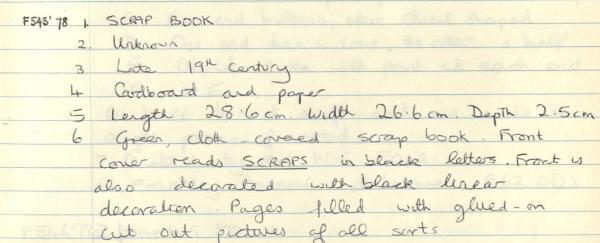 F543'78 1. SCRAP BOOK
2. Unknown
3 Late 19th Century
4 Cardboard and paper
5 Length 28·6cm. Width 26·6cm. Depth 2.5cm
6 Green, cloth-covered scrap book. Front
cover reads SCRAPS in black letters. Front is
also decorated with black linear
decoration. Pages filled with glued-on
cut out pictures of all sorts